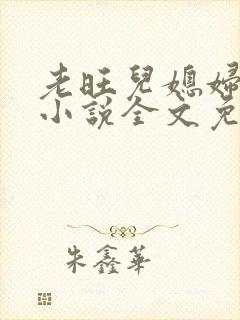 老旺兒媳婦
小說全文免
朱鑫華